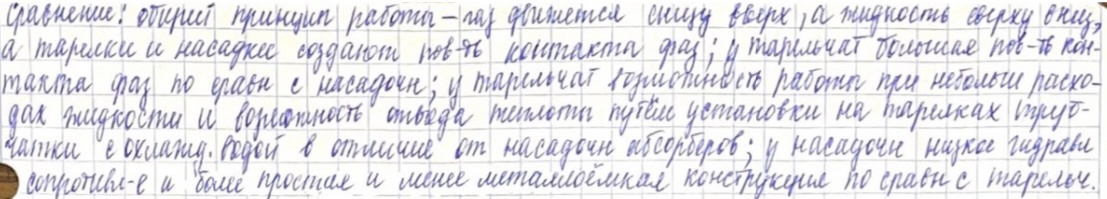 Сравнение: общий принцип работы – газ движется снизу вверх, а жидкость сверху вниз,
а тарелки и насадки создают пов-ть контакта фаз; у тарельчат большая пов-ть кон-
такта фаз по сравн с насадочн; у тарельчат возможность работы при небольш расхо-
дах жидкости и возможность отвода теплоты путём установки на тарелках труб-
чатки с охлажд. водой в отличие от насадочн абсорберов; у насадочн низкое гидравл
сопротивл-е и более простая и менее металлоёмкая конструкция по сравн с тарельч.